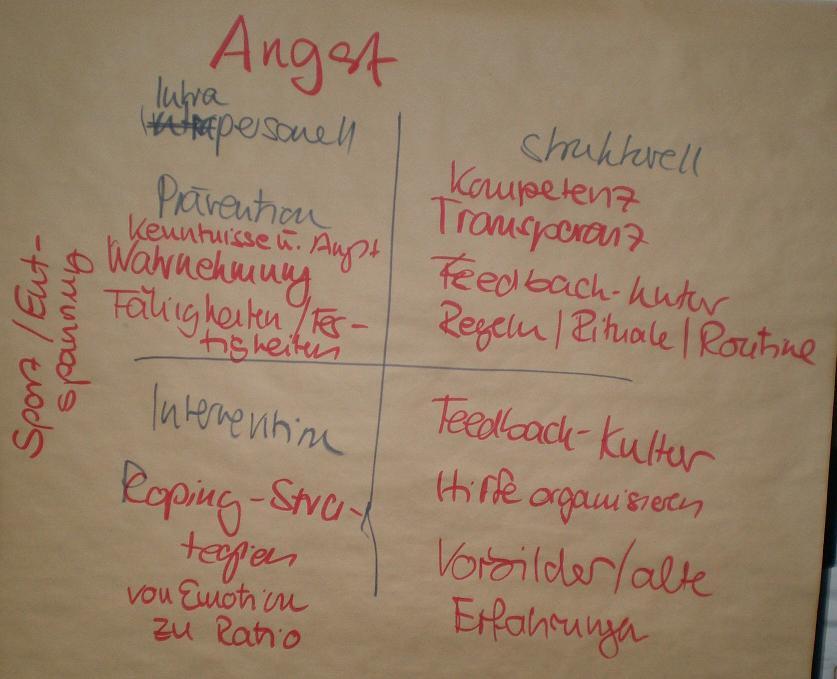 Angst
Intra
personell
Prävention
Kenntnisse ü. Angst
Wahrnehmung
Fähigkeiten / Fer-
tigkeiten
Sport / Ent-
spannung
strukturell
Kompetenz
Transparenz
Feedback-Kultur
Regeln / Rituale / Routine
Intervention
Koping-Stra-
tegien
von Emotion
zu Ratio
Feedback-Kultur
Hilfe organisieren
Vorbilder / alte
Erfahrungen